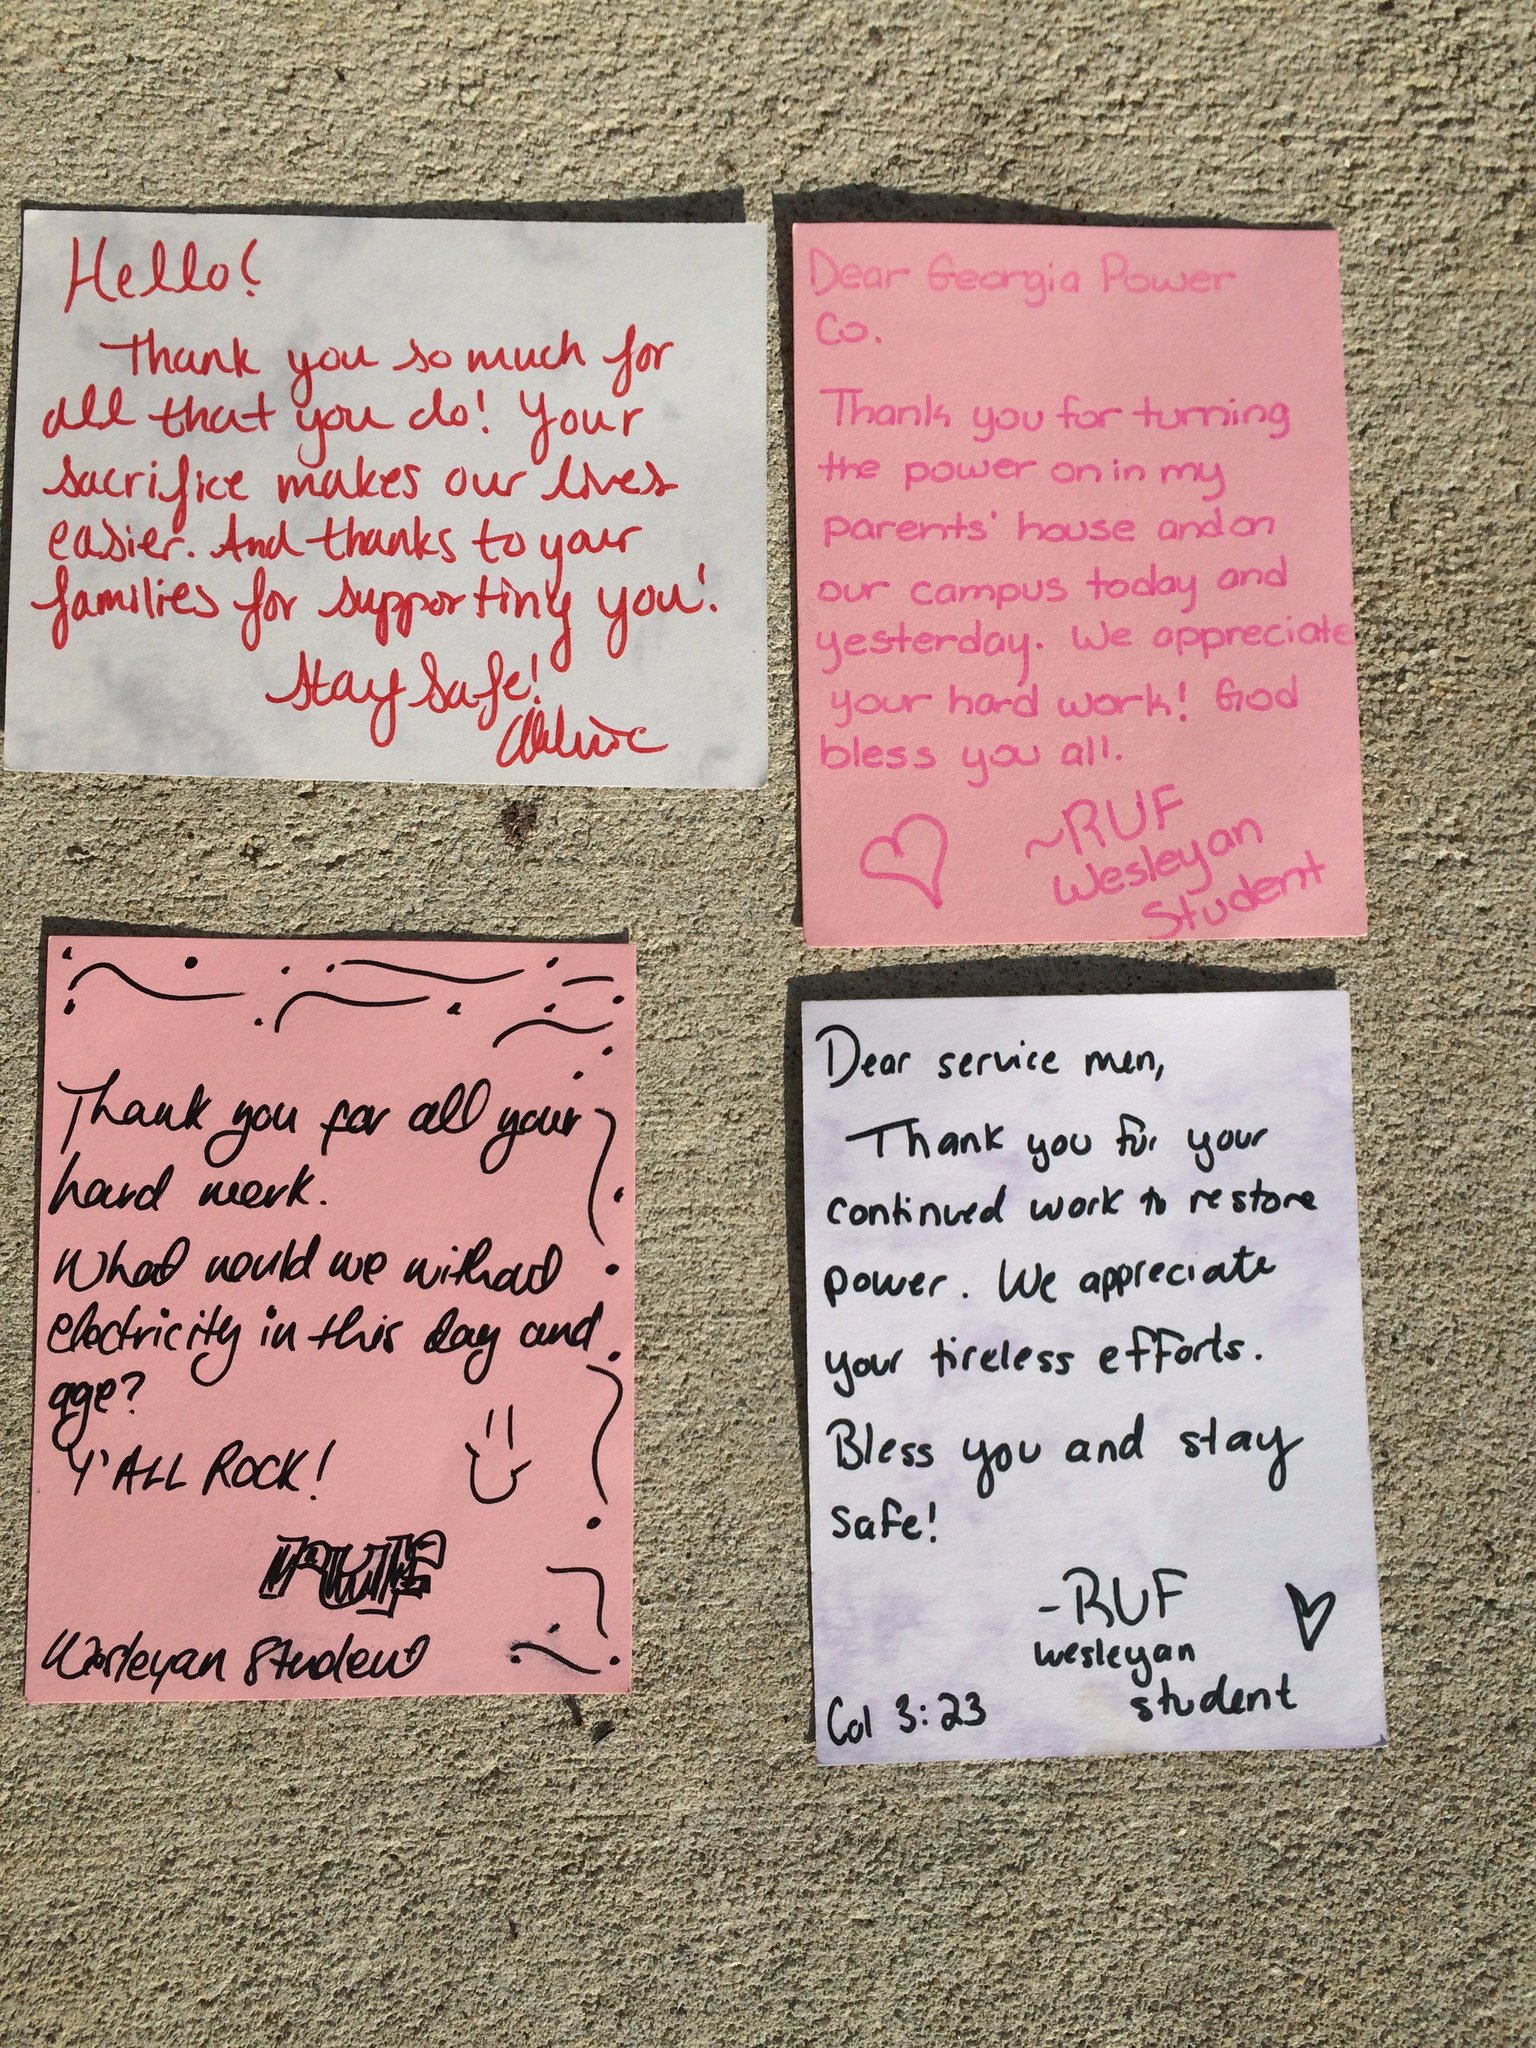 Hello!
Thank you so much for
all that you do! Your
sacrifice makes our lives
easier. And thanks to your
families for supporting you!
Stay Safe!
Dear Georgia Power
Co.
Thank you for turning
the power on in my
parents' house and on
our campus today and
yesterday. We appreciate
your hard work! God
bless you all.
~RUF
Wesleyan
Student
Thank you for all your
hard work.
What would we without
electricity in this day and
age?
Y'ALL ROCK!
RUF
Wesleyan Student
Dear service men,
Thank you for your
continued work to restore
power. We appreciate
your tireless efforts.
Bless you and stay
safe!
-RUF
Wesleyan
student
Col 3:23